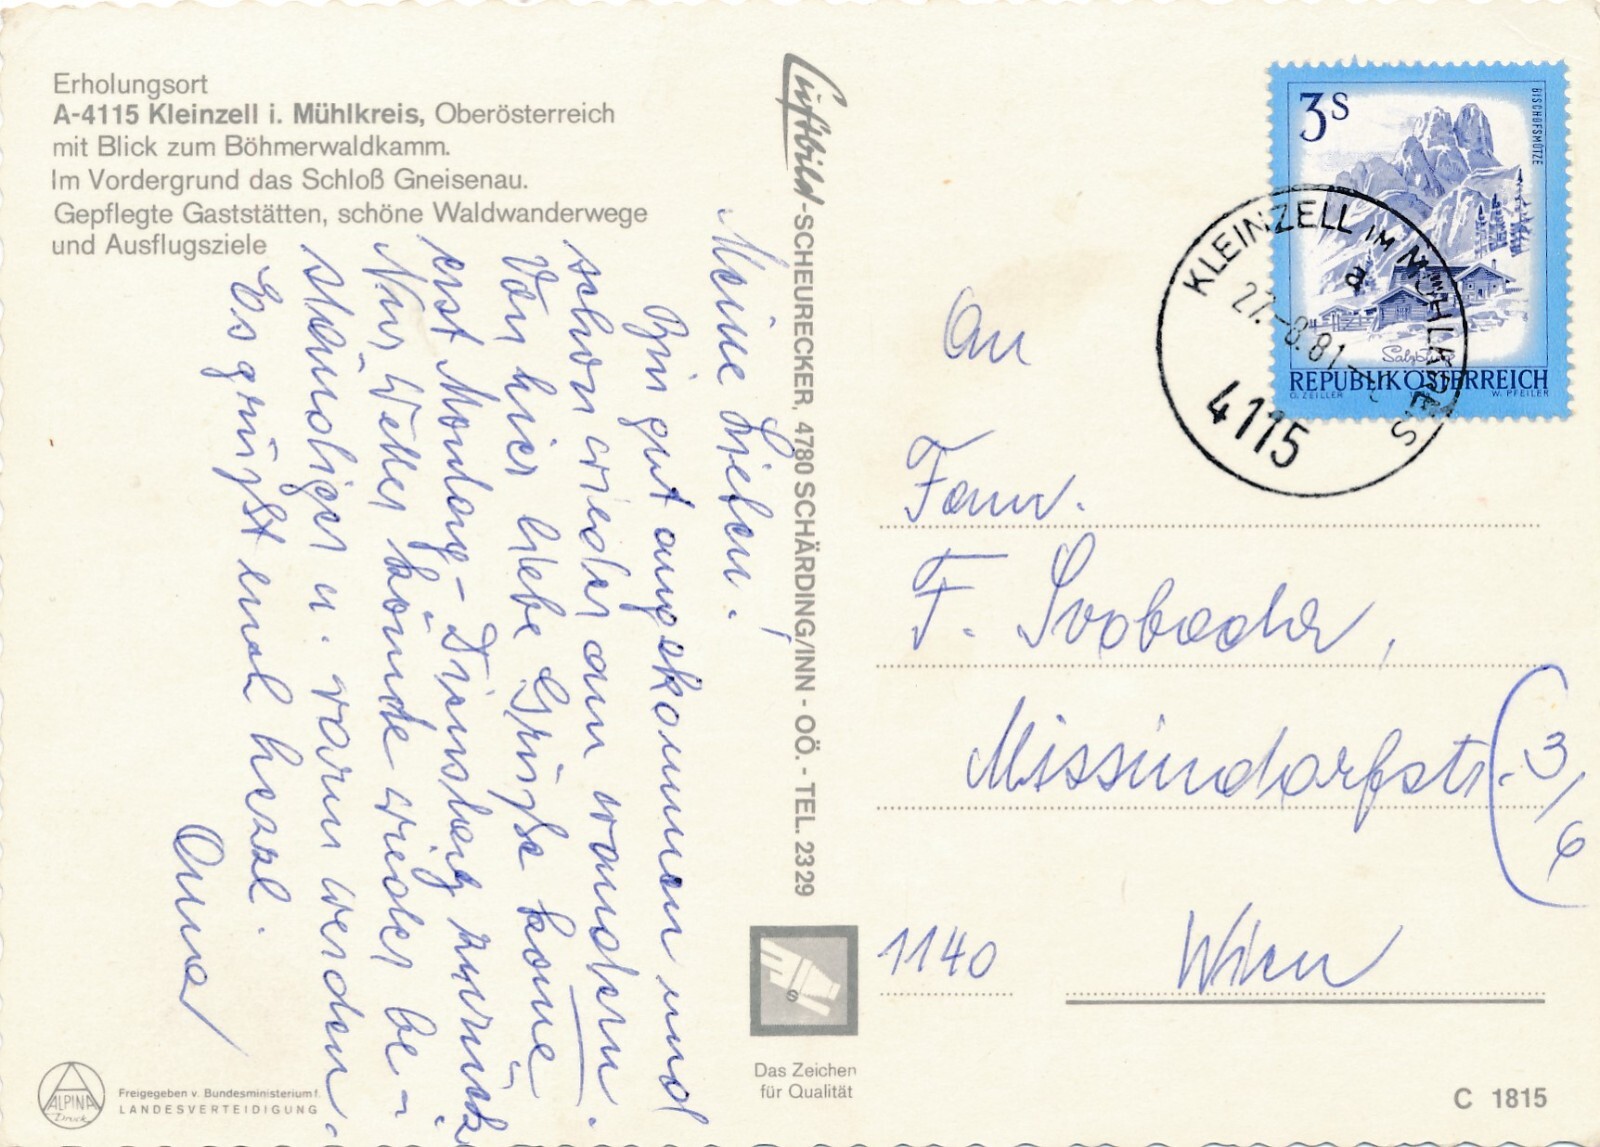 Erholungsort
A-4115 Kleinzell i. Mühlkreis, Oberösterreich
mit Blick zum Böhmerwaldkamm.
Im Vordergrund das Schloß Gneisenau.
Gepflegte Gaststätten, schöne Waldwanderwege
und Ausflugsziele
Meine Lieben!
Bin gut angekommen und
schon wieder am wandern.
Von hier liebe Grüße komme
erst Montag-Dienstag zurück
Nur Wetter könnte wieder be-
ständiger u. warm werden.
Es grüßt euch herzl.
Anna
Luftbild-SCHEURECKER, 4780 SCHÄRDING/INN - OÖ. - TEL. 2329
3S
BISCHOFSMÜTZE
Salzburg
REPUBLIK ÖSTERREICH
O. ZEILLER W. PFEILER
KLEINZELL IM MÜHLKREIS
a
27.-8.81
4115
An
Fam.
F. Svoboda,
Missindorfstr. 3/6
1140 Wien
Das Zeichen
für Qualität
ALPINA
Druck
Freigegeben v. Bundesministerium f.
LANDESVERTEIDIGUNG
C 1815